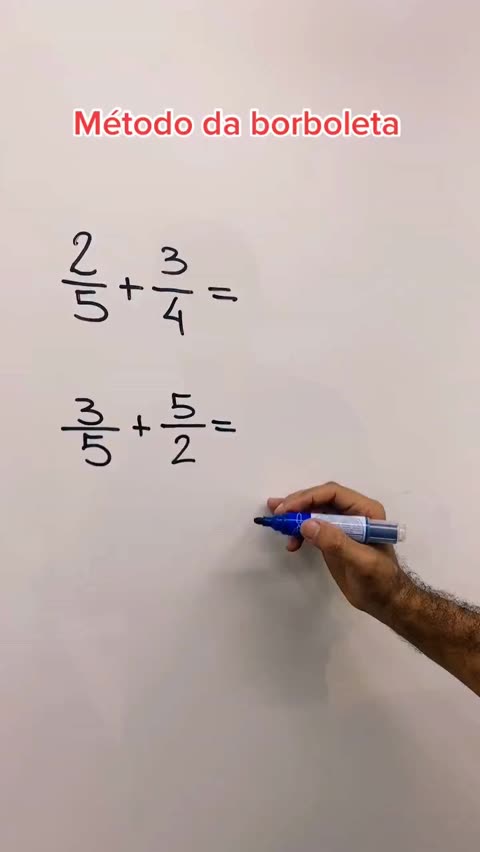 Método da borboleta
2/5 + 3/4 =
3/5 + 5/2 =